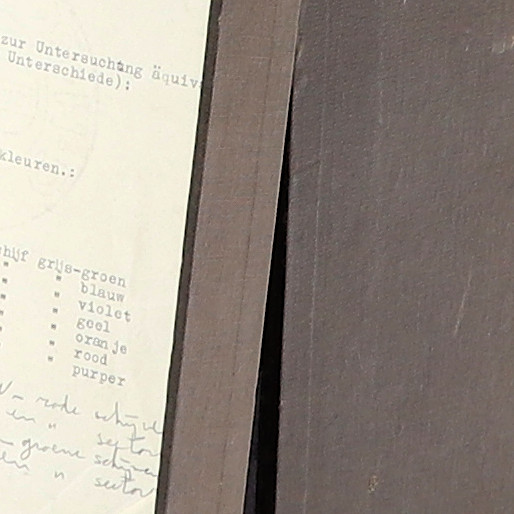 zur Untersuchung äquiv
Unterschiede):
kleuren.:
hijf grijs-groen
" " blauw
" " violet
" " geel
" " oranje
" " rood
" " purper
rode schijve
en " sector
groene schijve
en " sector